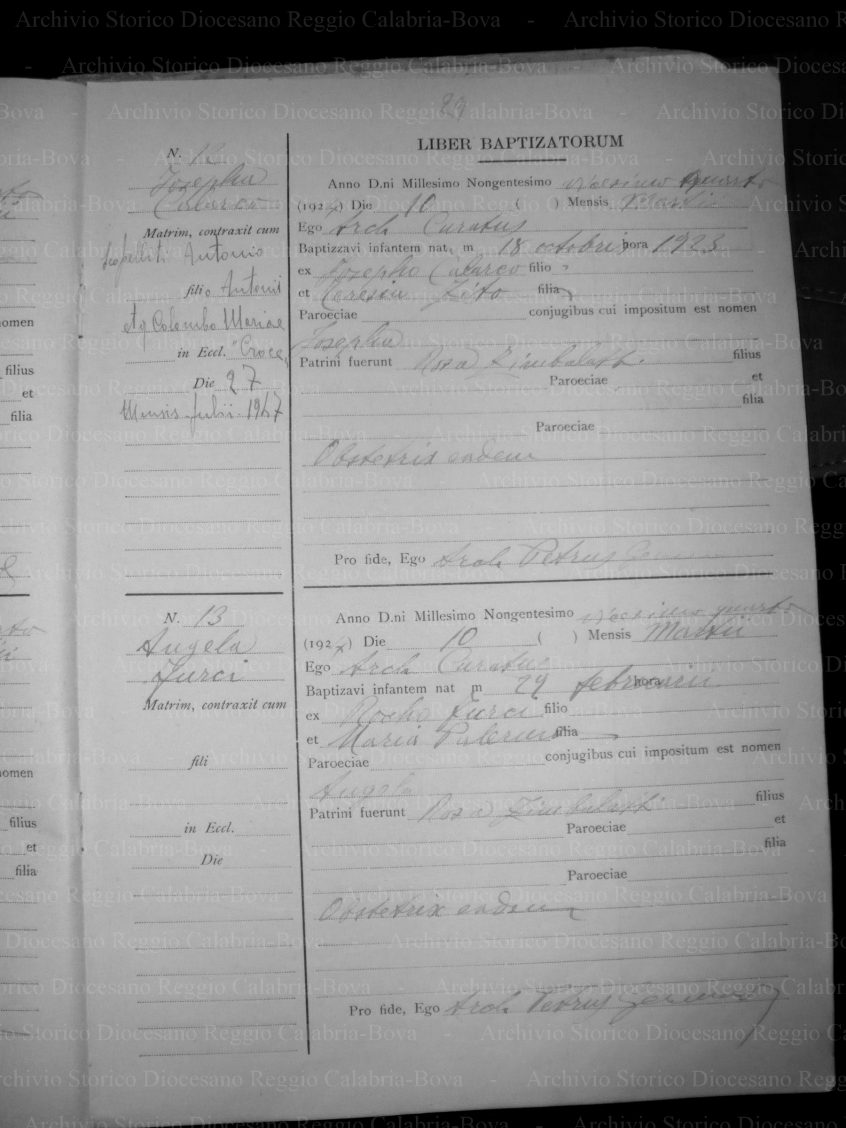 89
LIBER BAPTIZATORUM
N. 12
Josepha
Calarco
Matrim, contraxit cum
Antonio
filio Antonii
et q Colombo Mariae
in Eccl. "Croce"
Die 27
Mensis Julii 1947
Anno D.ni Millesimo Nongentesimo vicesimo quarto
(1924) Die 10 ( ) Mensis Martii
Ego Arch. Curatus
Baptizzavi infantem nat. m 18 octobris hora 1923
ex Josepho Calarco filio
et Teresia Zito filia
Paroeciae conjugibus cui impositum est nomen
Josepha
Patrini fuerunt Rosa filius
Paroeciae et
filia
Paroeciae
Obstetrix eadem
Pro fide, Ego Arch. Petrus
N. 13
Angela
Furci
Matrim, contraxit cum
fili
in Eccl.
Die
Anno D.ni Millesimo Nongentesimo vicesimo quarto
(1924) Die 10 ( ) Mensis Martii
Ego Arch. Curatus
Baptizavi infantem nat m 29 februarii hora
ex Rocho Furci filio
et Maria filia
Paroeciae conjugibus cui impositum est nomen
Angela
Patrini fuerunt Rosa filius
Paroeciae et
filia
Paroeciae
Obstetrix eadem
Pro fide, Ego Arch. Petrus
omen
filius
et
filia
nomen
filius
et
filia
Archivio Storico Diocesano Reggio Calabria-Bova